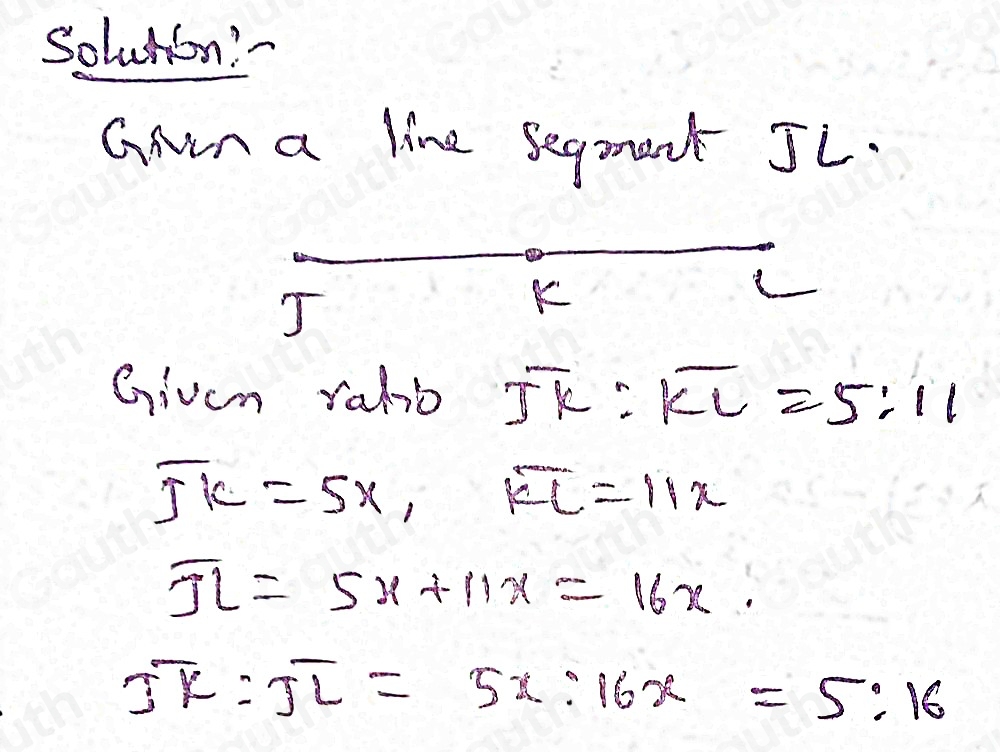 Solution:-
Given a line segment JL.
J K L
Given ratio J̅K̅ : K̅L̅ = 5:11
J̅K̅ = 5x, K̅L̅ = 11x
J̅L̅ = 5x + 11x = 16x.
J̅K̅ : J̅L̅ = 5x : 16x = 5:16